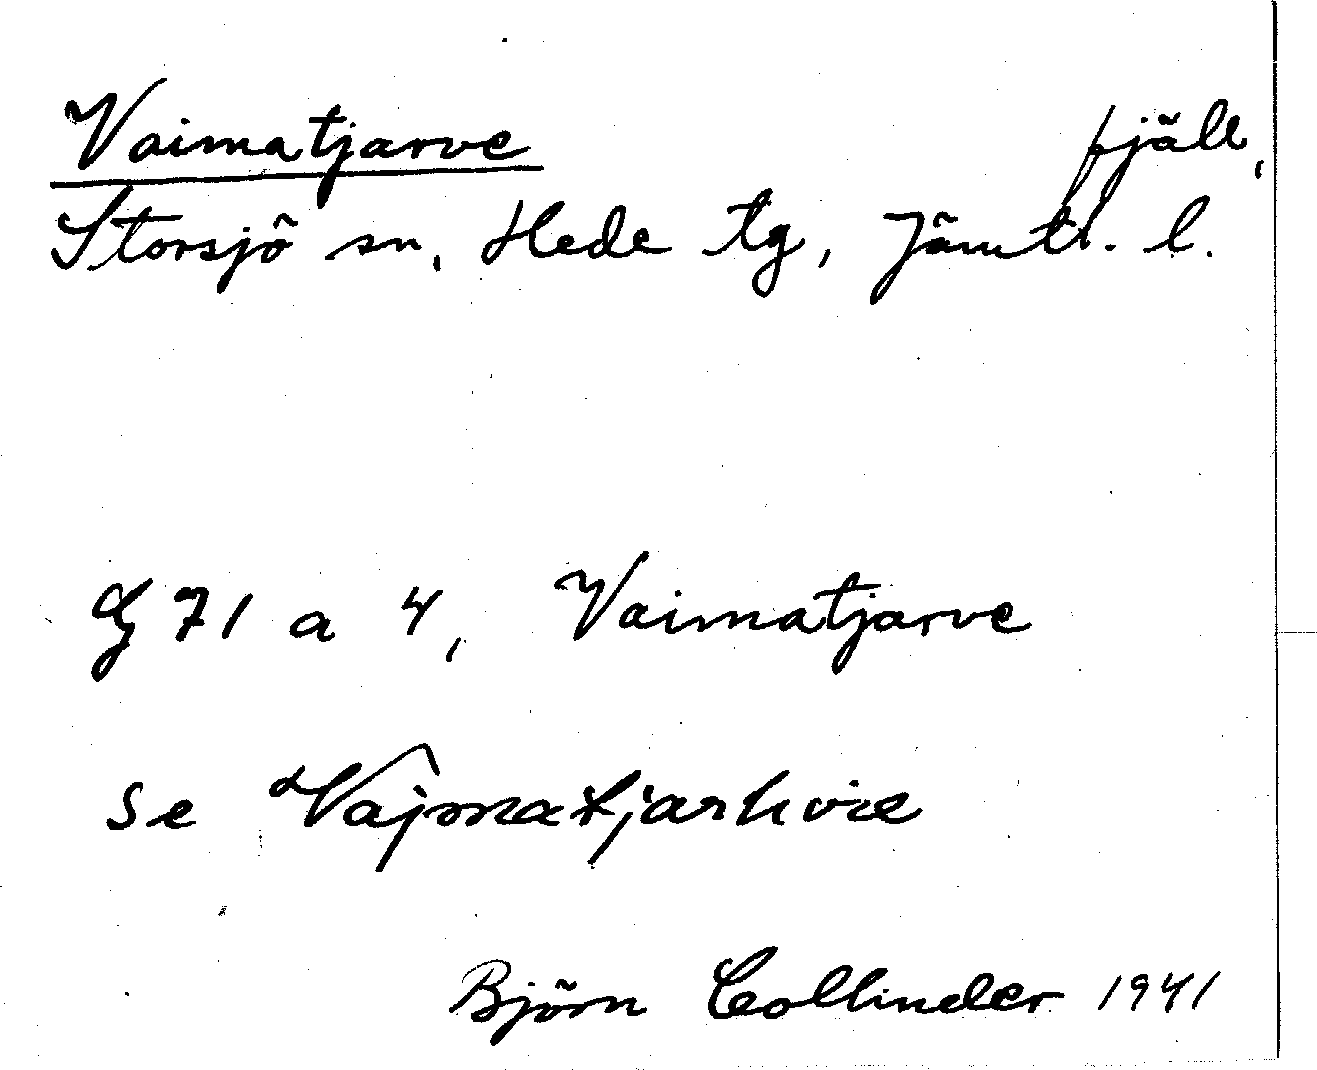 Vaimatjarve fjäll,
Storsjö sn, Hede tg, Jämtl. l.
G 71 a 4, Vaimatjarve
se Vajmatjarhvie
Björn Collinder 1941